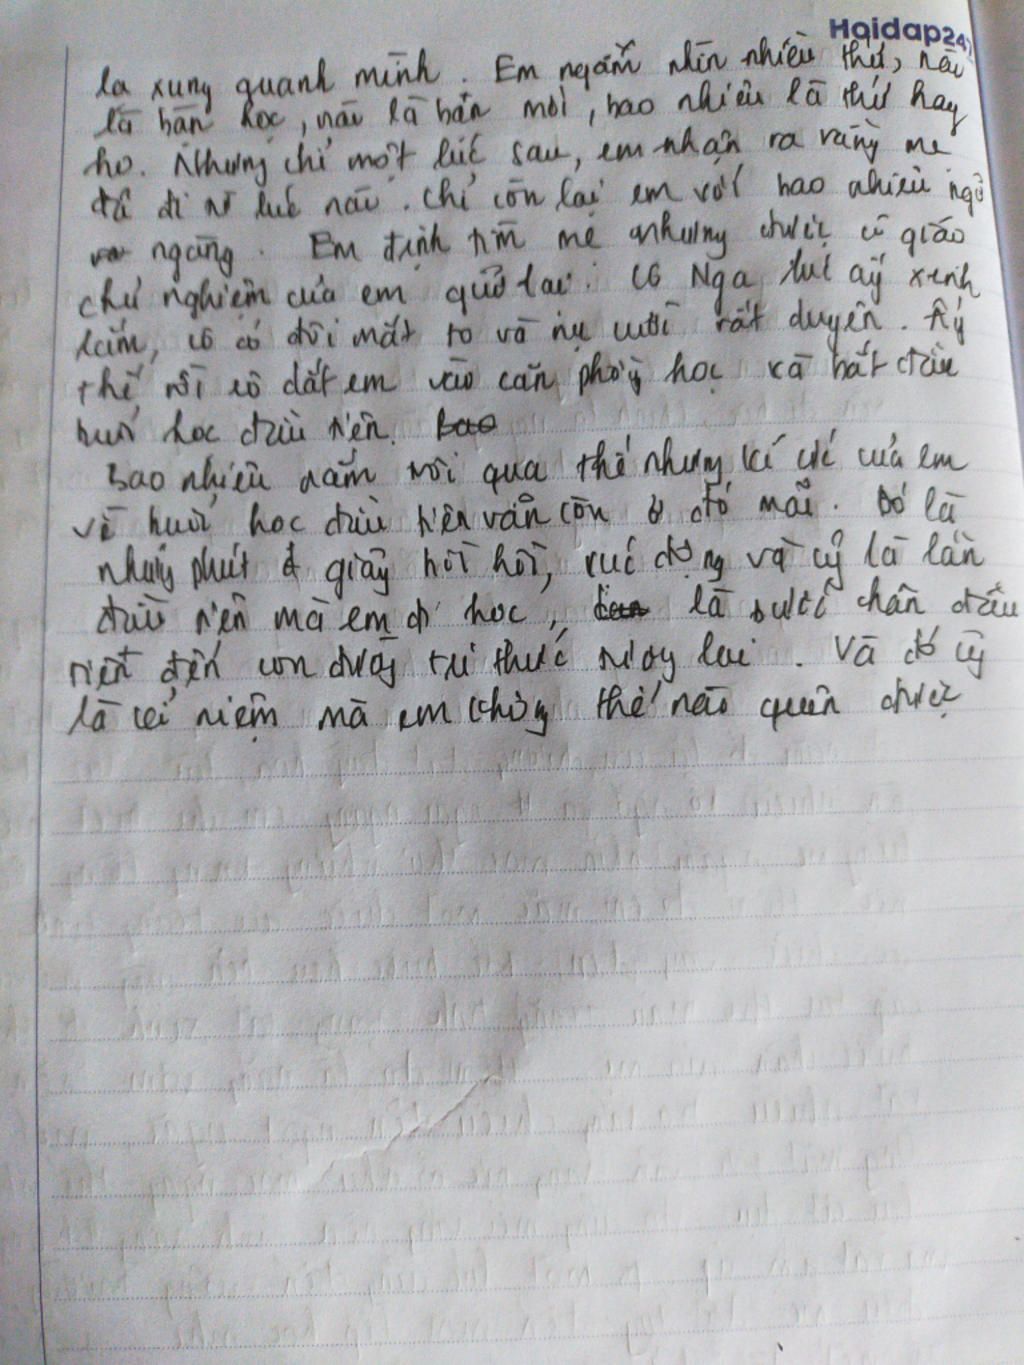 Hoidap247
lạ xung quanh mình. Em ngắm nhìn nhiều thứ, nào
là bàn học, nào là bạn mới, bao nhiêu là thứ hay
ho. Nhưng chỉ một lúc sau, em nhận ra rằng mẹ
đã đi từ lúc nào. Chỉ còn lại em với bao nhiêu
ngàng. Em định tìm mẹ nhưng được cô giáo
chủ nghiệm của em giữ lại. Cô Nga lúc ấy xinh
lắm, cô có đôi mắt to và nụ cười rất duyên. Ấy
thế rồi cô dắt em vào căn phòng học và bắt đầu
buổi học đầu tiên. Bao
Bao nhiêu năm trôi qua thế nhưng kí ức của em
về buổi học đầu tiên vẫn còn ở đó mãi. Đó là
những phút giây hồi hồi, xúc động và cũng là lần
đầu tiên mà em đi học, là bước chân đầu
tiên đến con đường tri thức tương lai. Và đó cũng
là cái niệm mà em không thế nào quên được